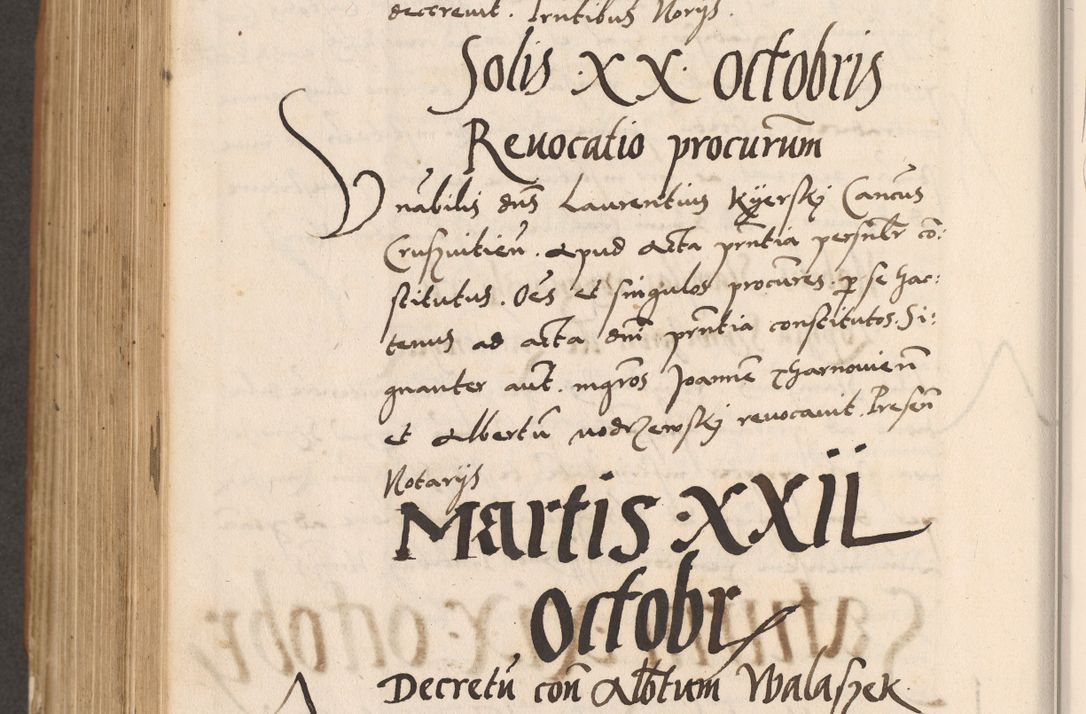 decrevit. Prntibus Norijs.
Solis XX Octobris
Revocatio procurum
Vnabilis dns Laurentius Kyersky Cancus
Crusvitien. Apud Acta prntia personalr con:
stitutus. Oes et singulos procures. per se hac:
tenus ad acta dni prntia constitutos. Si:
gnanter aut. mgros Joannem Tharnovien
et Albertu vodzewsky revocavit. Presen
Notarijs
Martis XXII
Octobr
Decretu con Albtum Walaszek